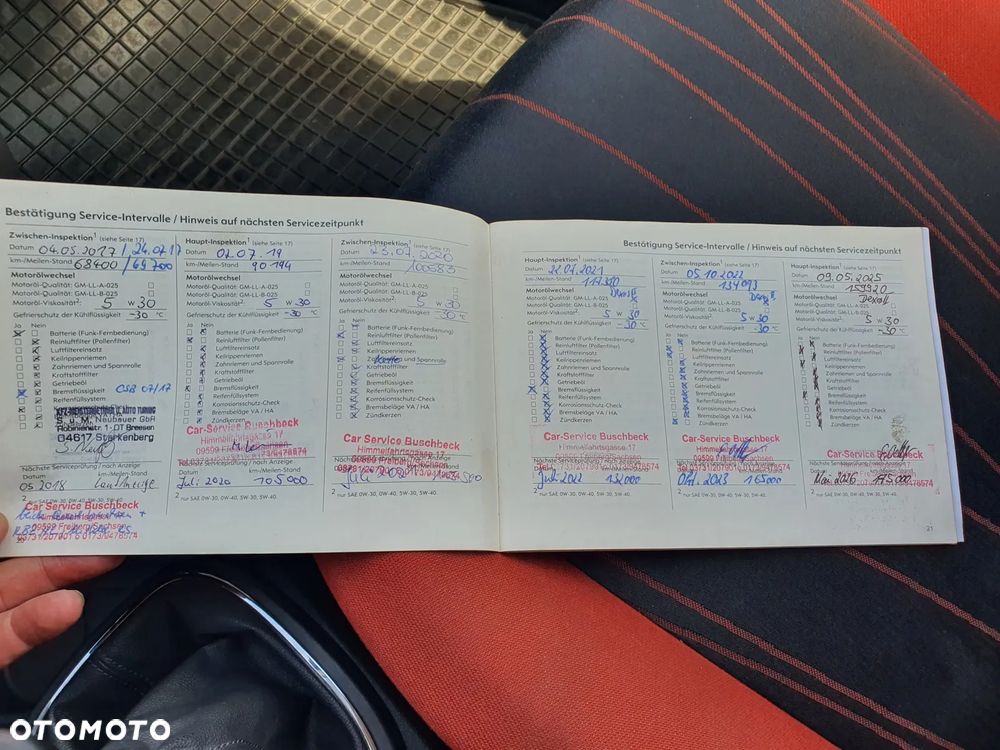 Bestätigung Service-Intervalle / Hinweis auf nächsten Servicezeitpunkt
Zwischen-Inspektion¹ (siehe Seite 17)
Datum 04.05.2017 / 24.07.17
km-/Meilen-Stand 68400 / 69700
Motorölwechsel
Motoröl-Qualität: GM-LL-A-025
Motoröl-Qualität: GM-LL-B-025
Motoröl-Viskosität²: 5 W 30
Gefrierschutz der Kühlflüssigkeit -30 °C
Ja Nein
Batterie (Funk-Fernbedienung)
Reinluftfilter (Pollenfilter)
Luftfiltereinsatz
Keilrippenriemen
Zahnriemen und Spannrolle
Kraftstofffilter
Getriebeöl
Bremsflüssigkeit CSB 07/17
Reifenfüllsystem
M. Neubauer GbR
Robinienstr. 1 · OT Breesen
04617 Starkenberg
Nächste Serviceprüfung / nach Anzeige
Datum km-/Meilen-Stand
05.2018 laut Anzeige
² nur SAE 0W-30, 0W-40, 5W-30, 5W-40.
Car Service Buschbeck
Himmelfahrtsgasse 17
09599 Freiberg/Sachsen
03731/207901 o 0173/0476574
Haupt-Inspektion¹ (siehe Seite 17)
Datum 02.07.19
km-/Meilen-Stand 90 194
Motorölwechsel
Motoröl-Qualität: GM-LL-A-025
Motoröl-Qualität: GM-LL-B-025
Motoröl-Viskosität²: 5 W-30
Gefrierschutz der Kühlflüssigkeit -30 °C
Ja Nein
Batterie (Funk-Fernbedienung)
Reinluftfilter (Pollenfilter)
Luftfiltereinsatz
Keilrippenriemen
Zahnriemen und Spannrolle
Kraftstofffilter
Getriebeöl
Bremsflüssigkeit
Reifenfüllsystem
Korrosionsschutz-Check
Bremsbeläge VA / HA
Zündkerzen
Car-Service Buschbeck
Himmelfahrtsgasse 17
Nächste Serviceprüfung / nach Anzeige
Datum km-/Meilen-Stand
Juli 2020 105000
² nur SAE 0W-30, 0W-40, 5W-30, 5W-40.
Zwischen-Inspektion¹ (siehe Seite 17)
Datum 23.07.2020
km-/Meilen-Stand 100583
Motorölwechsel
Motoröl-Qualität: GM-LL-A-025
Motoröl-Qualität: GM-LL-B-025
Motoröl-Viskosität²: 5 W 30
Gefrierschutz der Kühlflüssigkeit -30 °C
Ja Nein
Batterie (Funk-Fernbedienung)
Reinluftfilter (Pollenfilter)
Luftfiltereinsatz
Keilrippenriemen
Zahnriemen und Spannrolle
Kraftstofffilter
Getriebeöl
Bremsflüssigkeit
Reifenfüllsystem
Korrosionsschutz-Check
Bremsbeläge VA / HA
Zündkerzen
Car Service Buschbeck
Himmelfahrtsgasse 17
09599 Freiberg/Sachsen
² nur SAE 0W-30, 0W-40, 5W-30, 5W-40.
Bestätigung Service-Intervalle / Hinweis auf nächsten Servicezeitpunkt
Haupt-Inspektion¹ (siehe Seite 17)
Datum
km-/Meilen-Stand
Motorölwechsel
Motoröl-Qualität: GM-LL-A-025
Motoröl-Qualität: GM-LL-B-025
Motoröl-Viskosität²: 5 W 30
Gefrierschutz der Kühlflüssigkeit -30 °C
Ja Nein
Batterie (Funk-Fernbedienung)
Reinluftfilter (Pollenfilter)
Luftfiltereinsatz
Keilrippenriemen
Zahnriemen und Spannrolle
Kraftstofffilter
Getriebeöl
Bremsflüssigkeit
Reifenfüllsystem
Korrosionsschutz-Check
Bremsbeläge VA / HA
Zündkerzen
Car-Service Buschbeck
Himmelfahrtsgasse 17
Juli 2022 132000
² nur SAE 0W-30, 0W-40, 5W-30, 5W-40.
Zwischen-Inspektion¹ (siehe Seite 17)
Datum 05.10.2022
km-/Meilen-Stand 134093
Motorölwechsel
Motoröl-Qualität: GM-LL-A-025
Motoröl-Qualität: GM-LL-B-025
Motoröl-Viskosität²: 5 W 30
Gefrierschutz der Kühlflüssigkeit -30 °C
Ja Nein
Batterie (Funk-Fernbedienung)
Reinluftfilter (Pollenfilter)
Luftfiltereinsatz
Keilrippenriemen
Zahnriemen und Spannrolle
Kraftstofffilter
Getriebeöl
Bremsflüssigkeit
Reifenfüllsystem
Korrosionsschutz-Check
Bremsbeläge VA / HA
Zündkerzen
Car-Service Buschbeck
Himmelfahrtsgasse 17
Okt. 2023 165000
² nur SAE 0W-30, 0W-40, 5W-30, 5W-40.
Haupt-Inspektion¹ (siehe Seite 17)
Datum 09.05.2025
km-/Meilen-Stand 159920
Motorölwechsel
Motoröl-Qualität: GM-LL-A-025
Motoröl-Qualität: GM-LL-B-025
Motoröl-Viskosität²: 5 W 30
Gefrierschutz der Kühlflüssigkeit -30 °C
Ja Nein
Batterie (Funk-Fernbedienung)
Reinluftfilter (Pollenfilter)
Luftfiltereinsatz
Keilrippenriemen
Zahnriemen und Spannrolle
Kraftstofffilter
Getriebeöl
Bremsflüssigkeit
Reifenfüllsystem
Korrosionsschutz-Check
Bremsbeläge VA / HA
Zündkerzen
Car-Service
Mai 2026 175000
² nur SAE 0W-30, 0W-40, 5W-30, 5W-40.
21
OTOMOTO